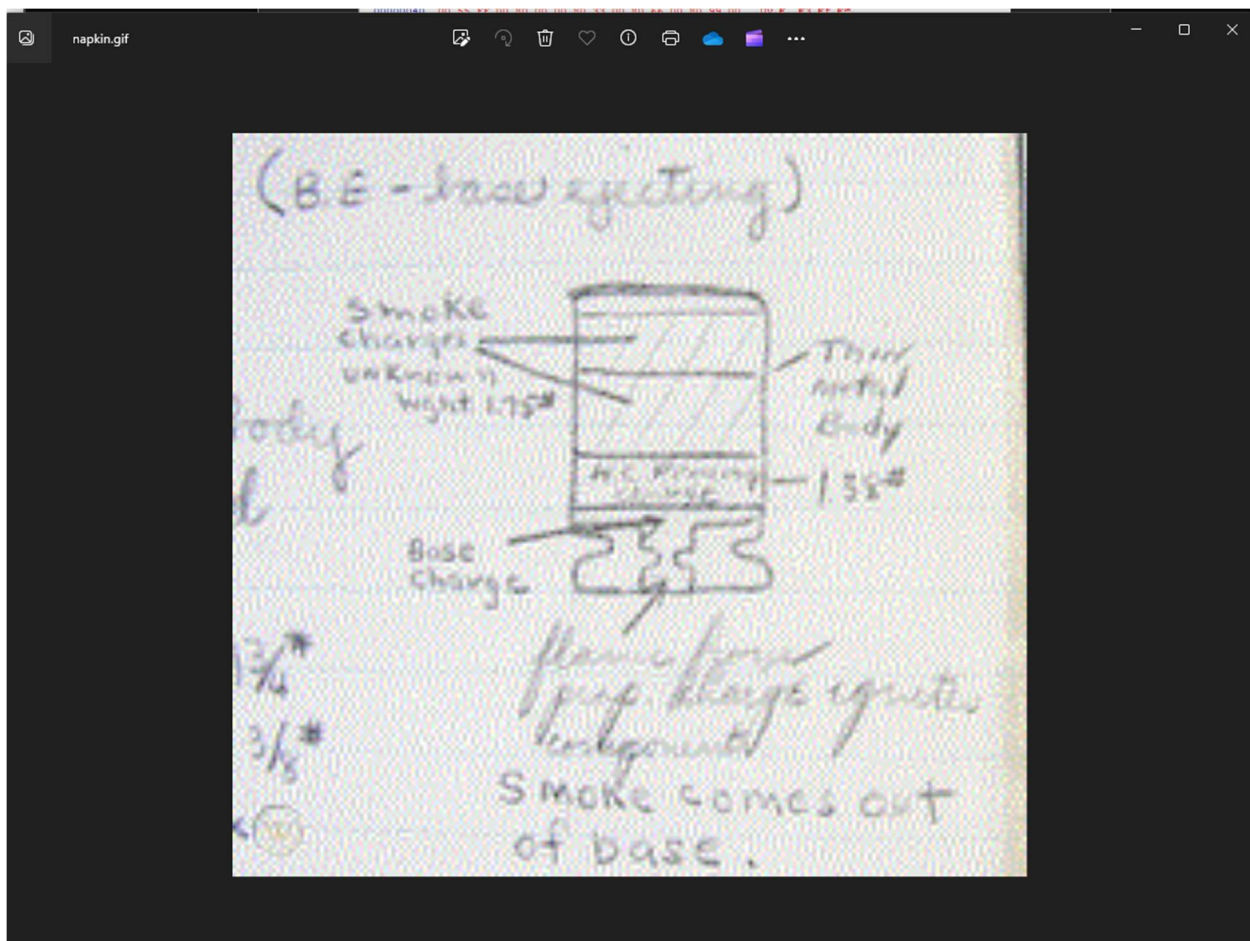 napkin.gif
(B.E - base ejecting)
Smoke
charges
unknown
wght 1.75#
Thin
metal
Body
body
H.C. Priming
charge
1.38#
Base
charge
3/4#
3/8#
flame from
prop. charge ignites
components
Smoke comes out
of base.